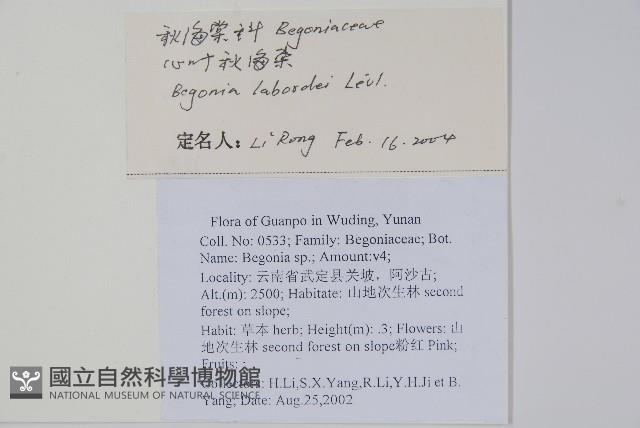 秋海棠科 Begoniaceae
心叶秋海棠
Begonia labordei Lévl.
定名人: Li Rong Feb. 16. 2004
Flora of Guanpo in Wuding, Yunan
Coll. No: 0533; Family: Begoniaceae; Bot.
Name: Begonia sp.; Amount:v4;
Locality: 云南省武定县关坡，阿沙古;
Alt.(m): 2500; Habitate: 山地次生林 second
forest on slope;
Habit: 草本 herb; Height(m): .3; Flowers: 山
地次生林 second forest on slope粉红 Pink;
Fruits: -
Collectors: H.Li,S.X.Yang,R.Li,Y.H.Ji et B.
Yang; Date: Aug.25,2002
國立自然科學博物館
NATIONAL MUSEUM OF NATURAL SCIENCE